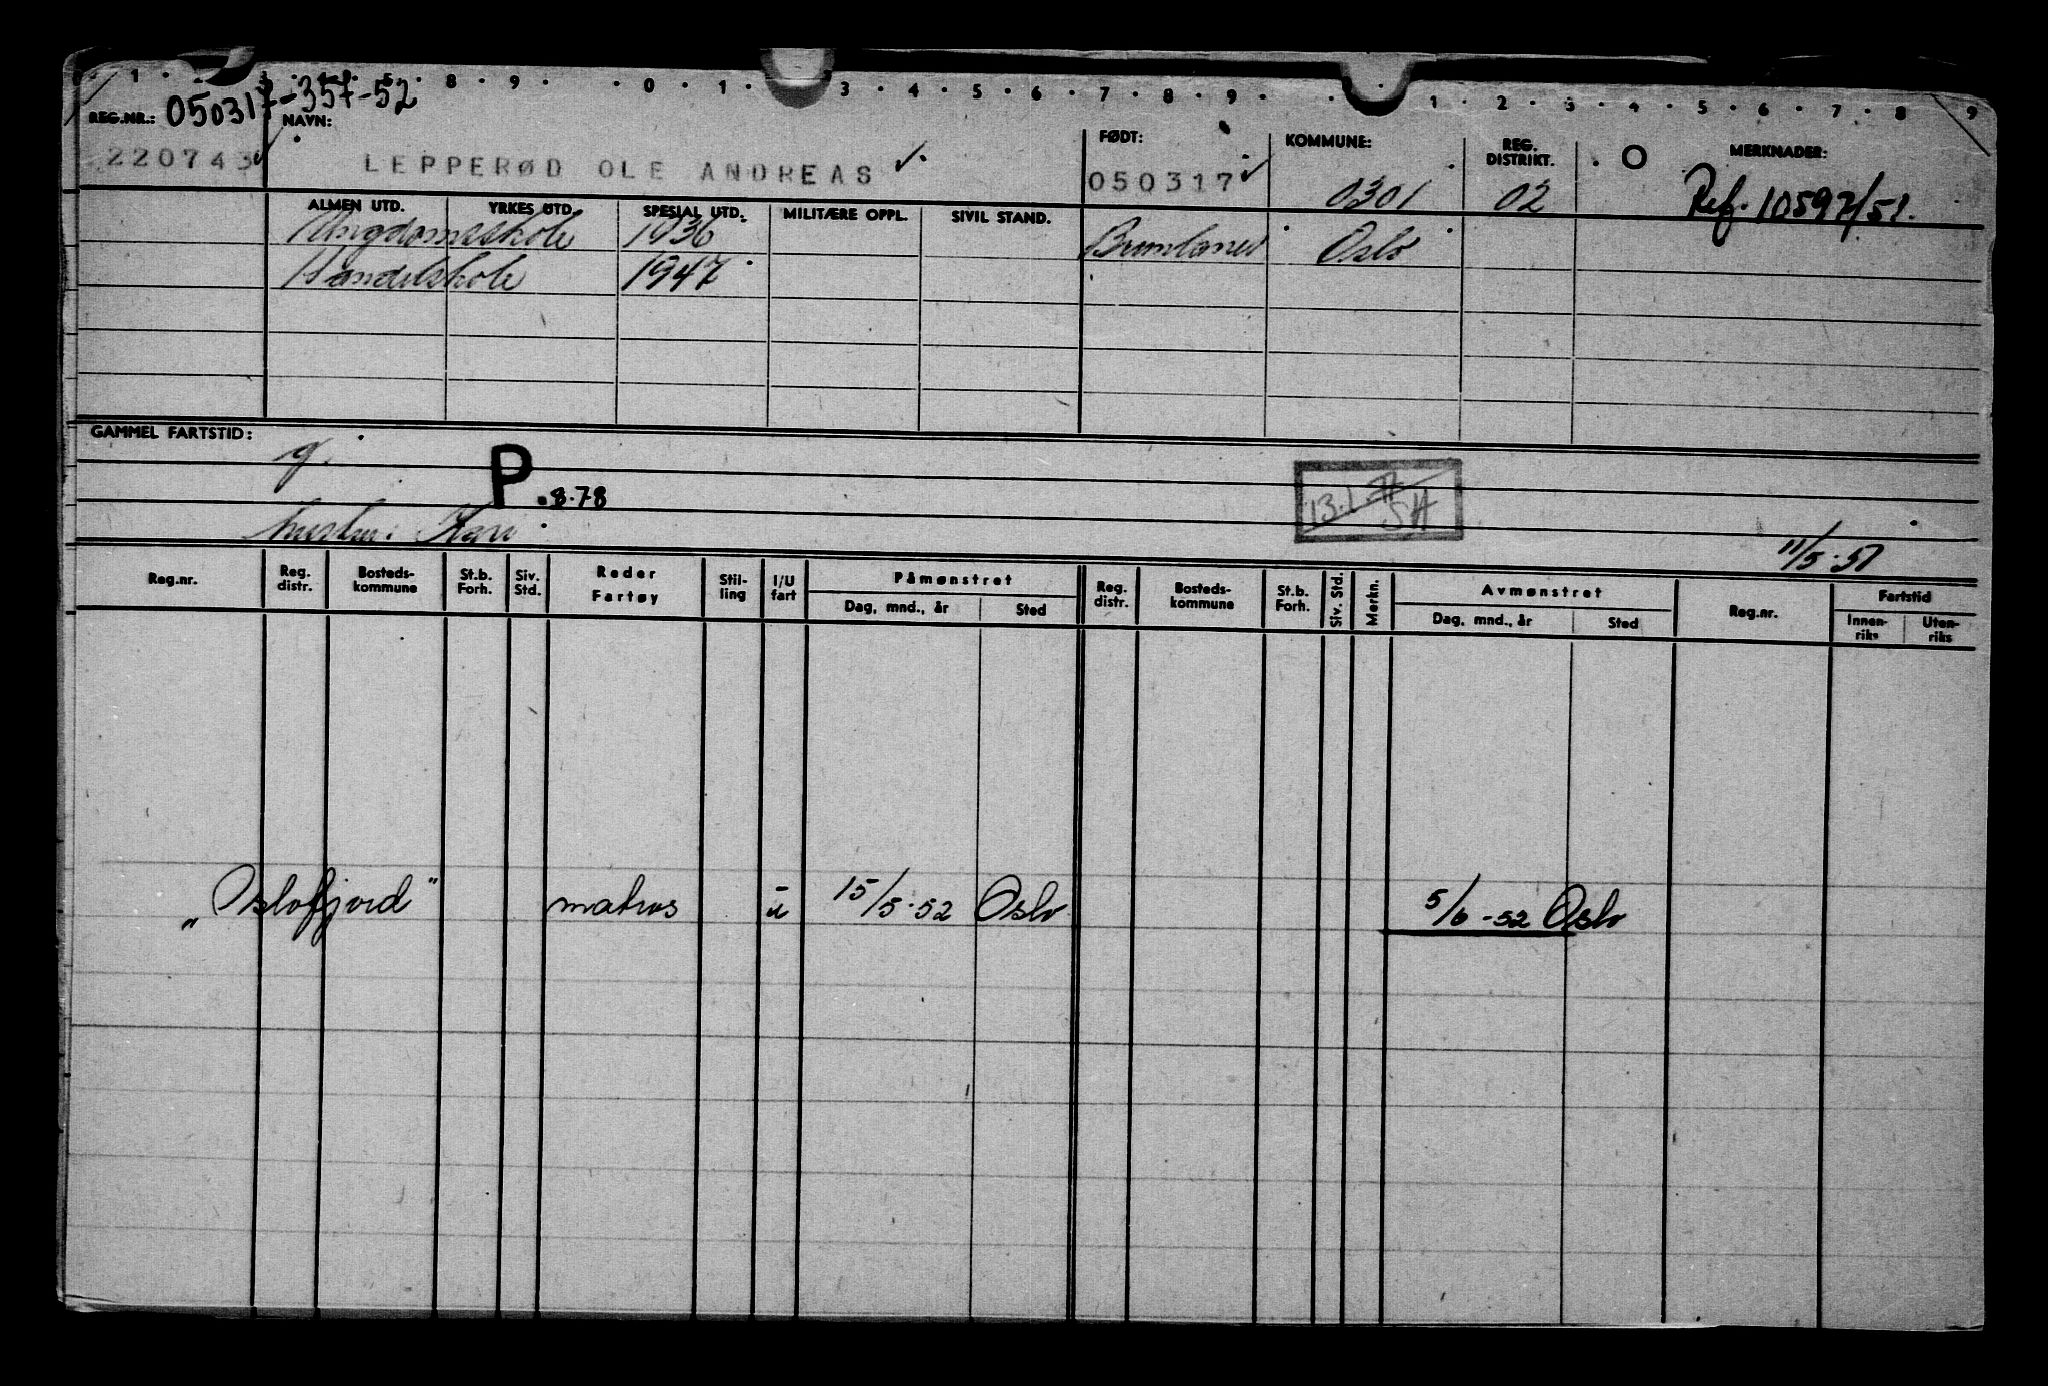 1 2 3 4 5 8 9 0 1 3 4 5 6 7 8 9 1 2 3 4 5 6 7 8 9
REG.NR.: 050317-357-52 NAVN: FØDT: KOMMUNE: REG. DISTRIKT. O MERKNADER:
220743 LEPPERØD OLE ANDREAS 050317 0301 02 Ref. 10597/51.
ALMEN UTD. YRKES UTD. SPESIAL UTD. MILITÆRE OPPL. SIVIL STAND.
Ungdomsskole 1936 Brunlanes Oslo
Handelskole 1947
GAMMEL FARTSTID:
g.
P.8.78
13.1 SH
hustru: Kari
11/5-51
Reg.nr. Reg. distr. Bosteds-kommune St.b. Forh. Siv. Std. Reder Fartøy Stil-ling I/U fart Påmønstret Reg. distr. Bosteds-kommune St.b. Forh. Siv. Std. Merkn. Avmønstret Reg.nr. Fartstid
Dag, mnd., år Sted Dag, mnd., år Sted Innen-riks Uten-riks
"Oslofjord" matros u 15/5-52 Oslo 5/6-52 Oslo